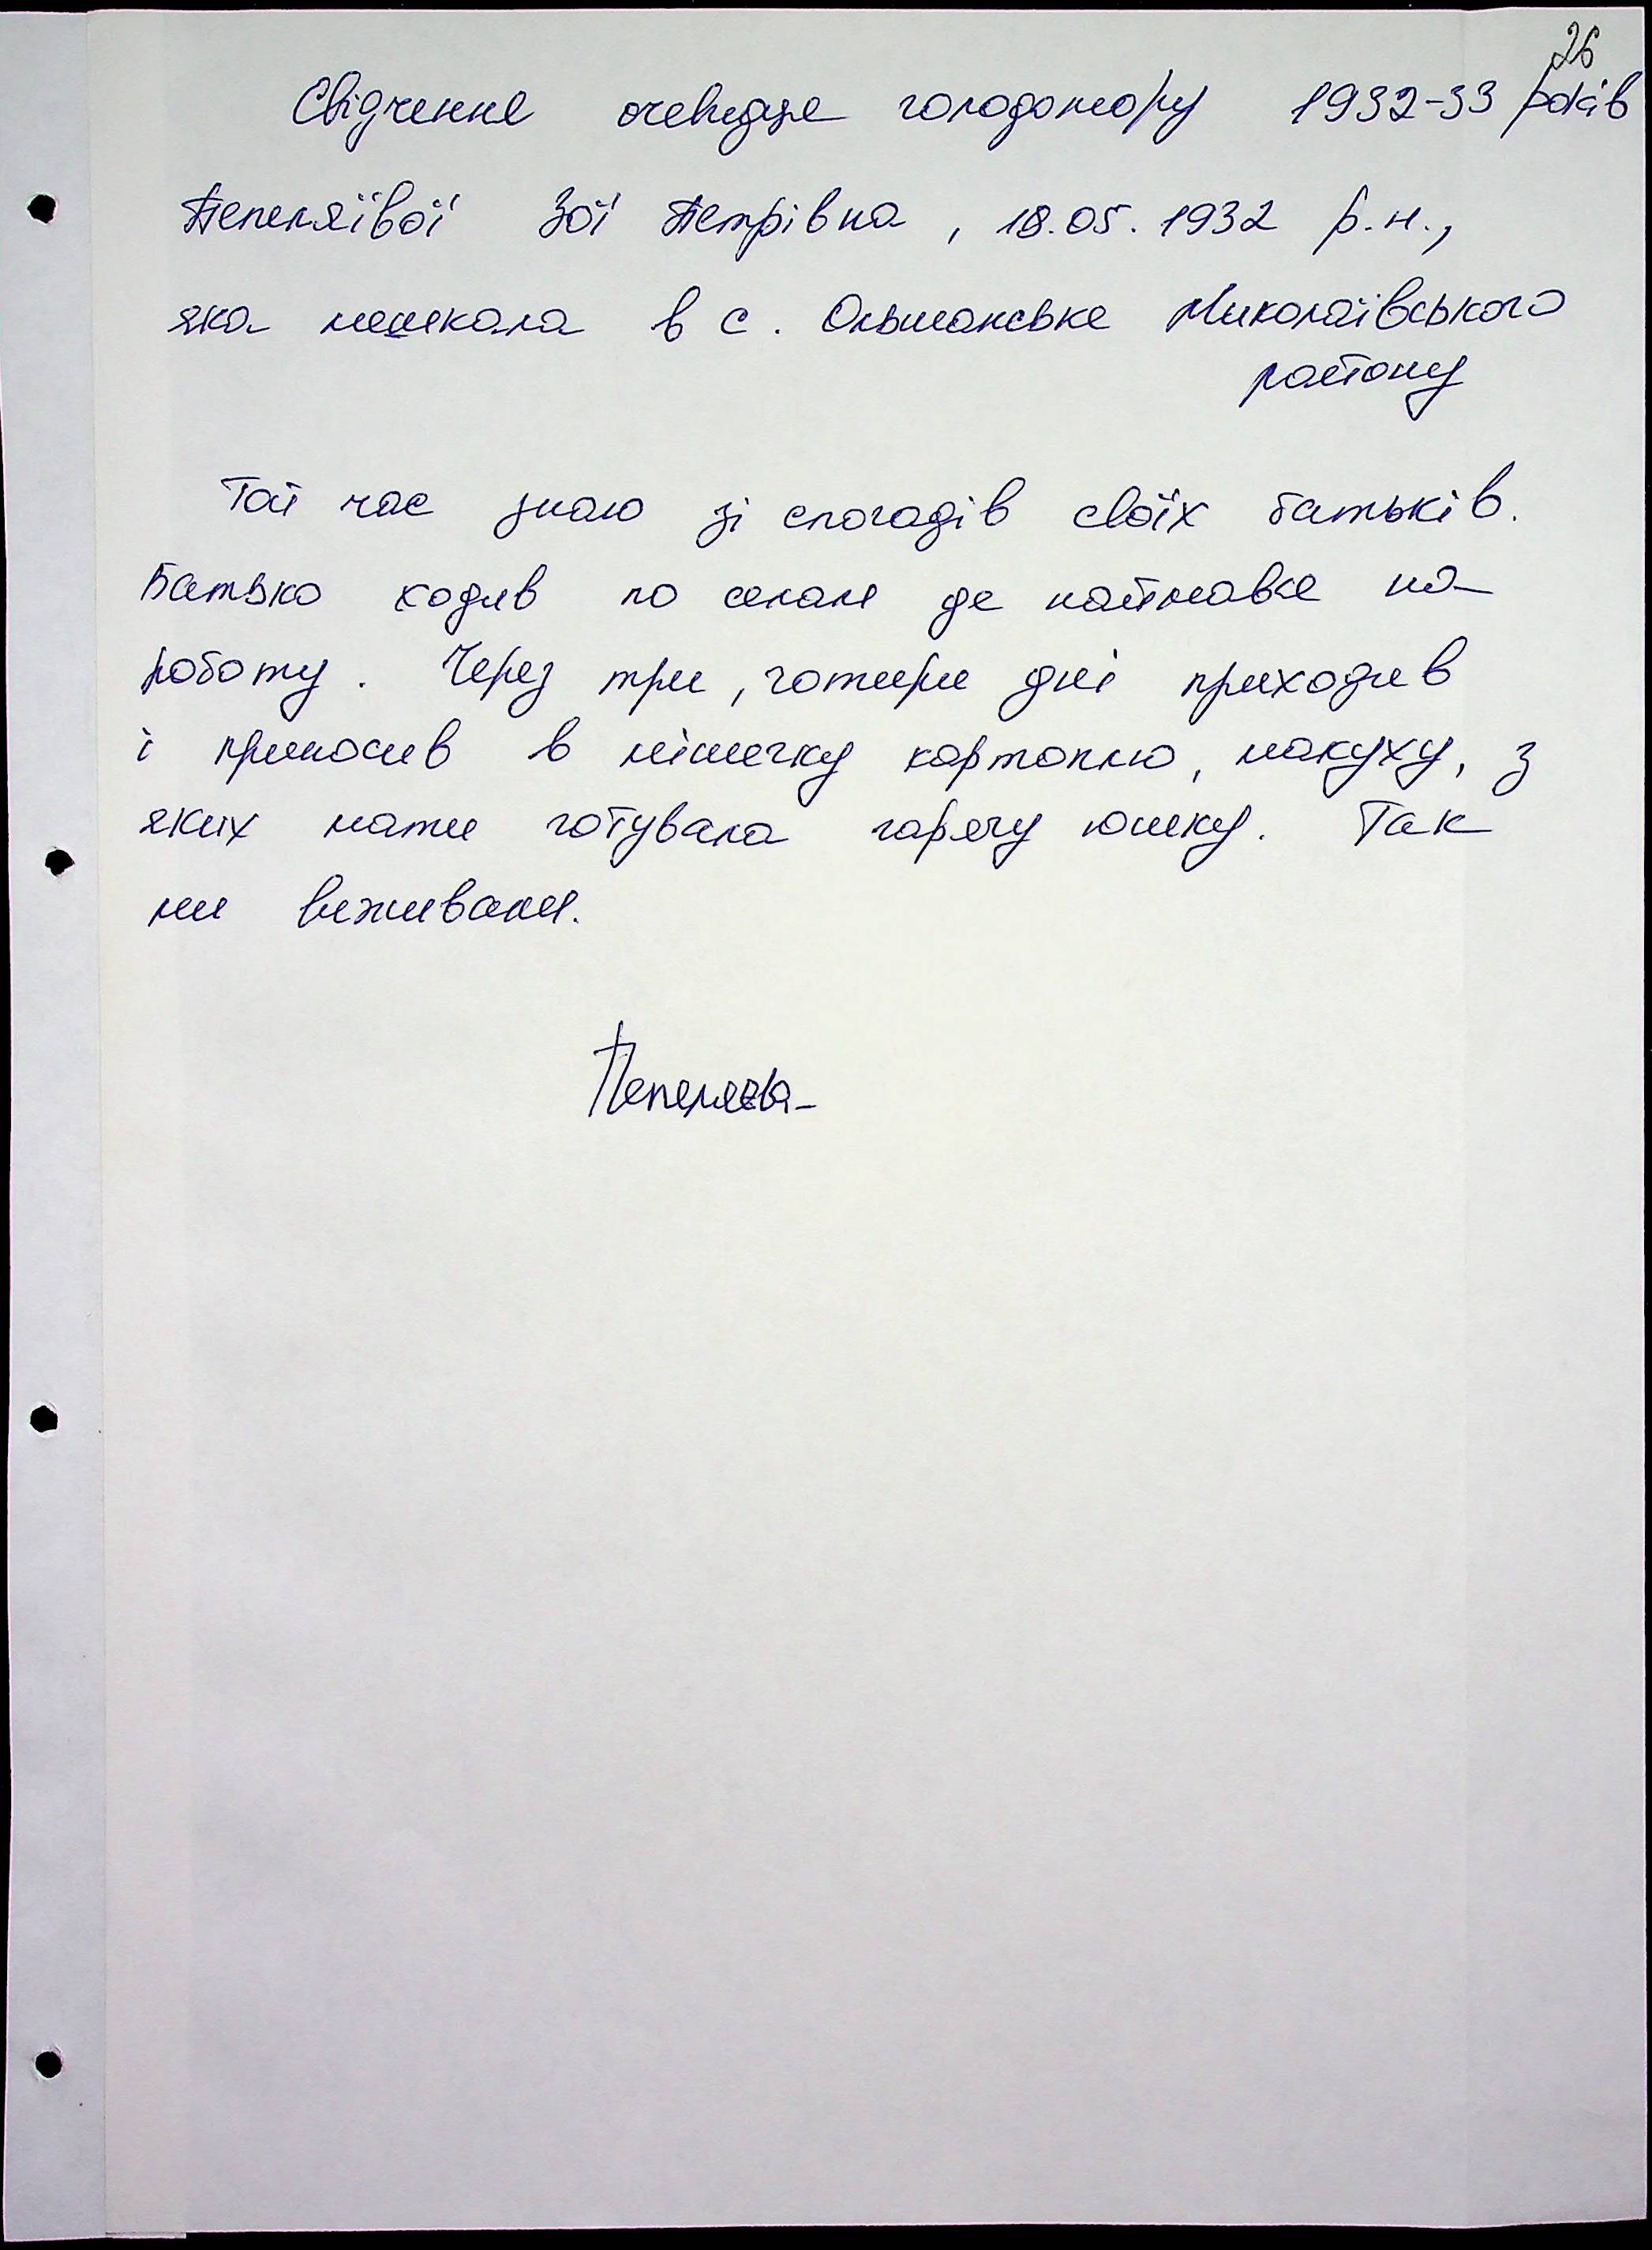 26
Свідчення очевидця голодомору 1932-33 років
Пепеляївої Зої Петрівна, 18.05.1932 р.н.,
яка мешкала в с. Ольшанське Миколаївського
району
Той час знаю зі спогадів своїх батьків.
Батько ходив по селам де наймався на
роботу. Через три, чотири дні приходив
і приносив в мішечку картоплю, макуху, з
яких мати готувала гарячу юшку. Так
ми виживали.
Пепеляєва